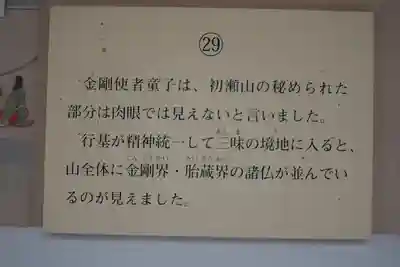 ㉙
金剛使者童子は、初瀬山の秘められた
部分は肉眼では見えないと言いました。
行基が精神統一して三昧の境地に入ると、
山全体に金剛界・胎蔵界の諸仏が並んでい
るのが見えました。